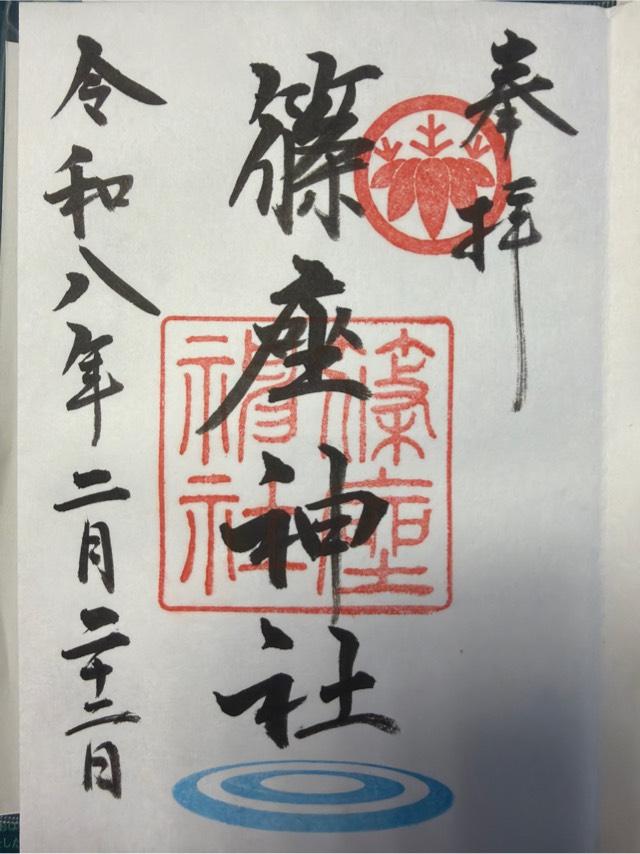 奉拝
篠座神社
篠座神社
令和八年二月二十二日